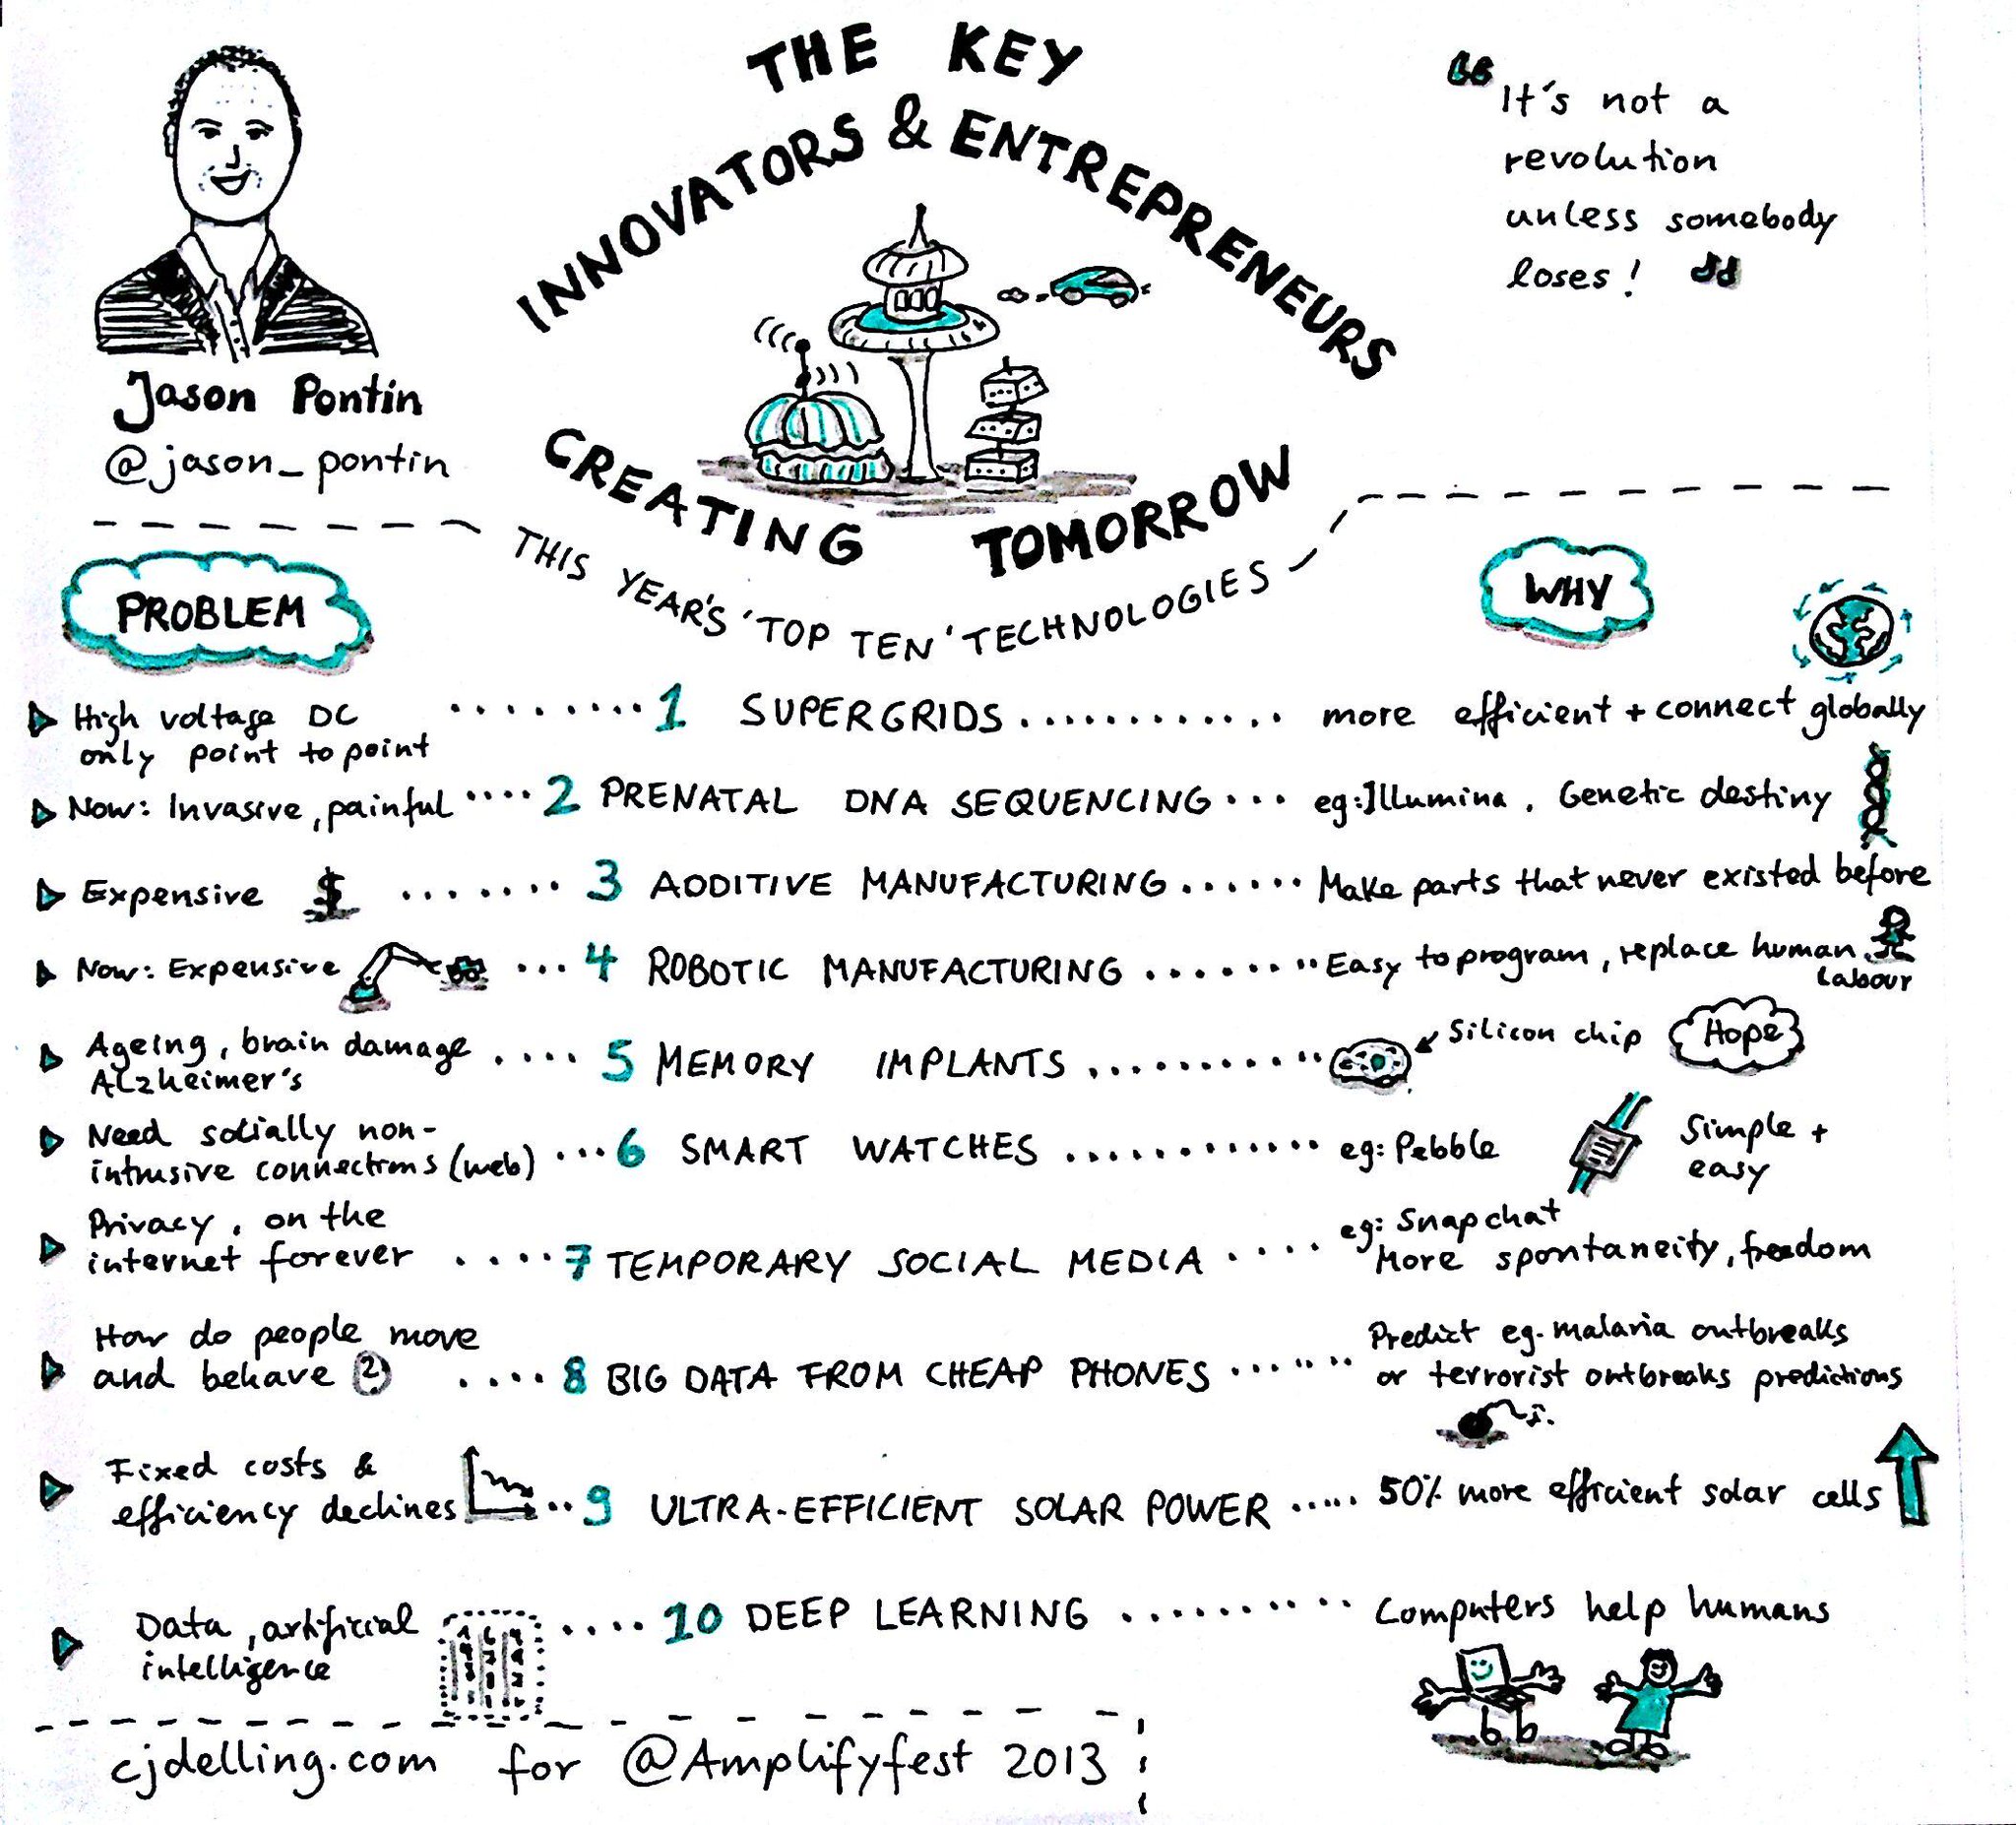 THE KEY
INNOVATORS & ENTREPRENEURS
CREATING TOMORROW
Jason Pontin
@jason_pontin
“ It's not a
revolution
unless somebody
loses! ”
THIS YEAR'S 'TOP TEN' TECHNOLOGIES
PROBLEM
WHY
High voltage DC
only point to point
1 SUPERGRIDS
more efficient + connect globally
Now: Invasive, painful
2 PRENATAL DNA SEQUENCING
eg: Illumina. Genetic destiny
Expensive $
3 ADDITIVE MANUFACTURING
Make parts that never existed before
Now: Expensive
4 ROBOTIC MANUFACTURING
Easy to program, replace human
labour
Ageing, brain damage
Alzheimer's
5 MEMORY IMPLANTS
Silicon chip
Hope
Need socially non-
intrusive connections (web)
6 SMART WATCHES
eg: Pebble
Simple +
easy
Privacy, on the
internet forever
7 TEMPORARY SOCIAL MEDIA
eg: Snapchat
More spontaneity, freedom
How do people move
and behave ?
8 BIG DATA FROM CHEAP PHONES
Predict eg. malaria outbreaks
or terrorist outbreaks predictions
Fixed costs &
efficiency declines
9 ULTRA-EFFICIENT SOLAR POWER
50% more efficient solar cells
Data, artificial
intelligence
10 DEEP LEARNING
Computers help humans
cjdelling.com for @Amplifyfest 2013